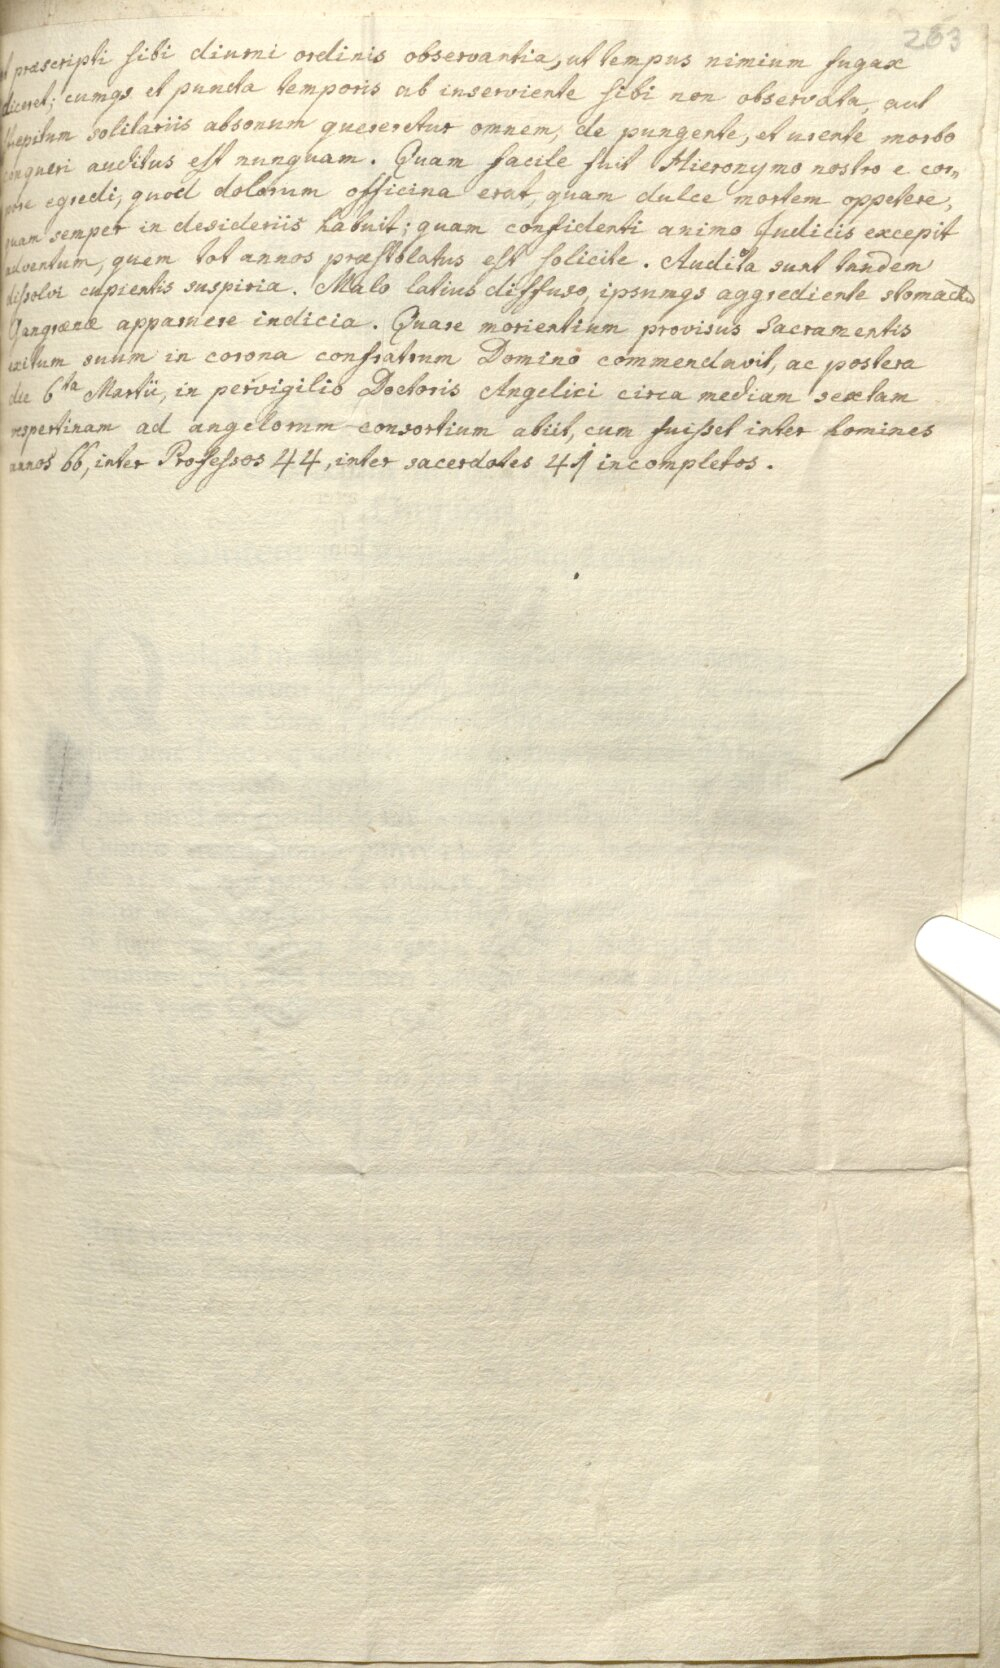 263
et præscripti sibi diurni ordinis observantia, ut tempus nimium fugax
diceret; cumqs et puncta temporis ab inserviente sibi non observata, aut
strepitum solitariis absonum quereretur omnem, de pungente, et urente morbo
conqueri auditus est nunquam. Quam facile fuit Hieronymo nostro e cor=
pore egredi, quod dolorum officina erat, quam dulce mortem oppetere,
quam semper in desideriis habuit; quam confidenti animo Judicis excepit
adventum, quem tot annos præstolatus est solicite. Audita sunt tandem
dissolvi cupientis suspiria. Malo latius diffuso, ipsumqs aggrediente stomachum
Gangrænæ apparuere indicia. Quare morientium provisus Sacramentis
exitum suum in corona confratrum Domino commendavit, ac postera
die 6ta Martii, in pervigilio Doctoris Angelici circa mediam sextam
vespertinam ad angelorum consortium abiit, cum fuisset inter homines
annos 66, inter Professos 44, inter sacerdotes 41 incompletos.